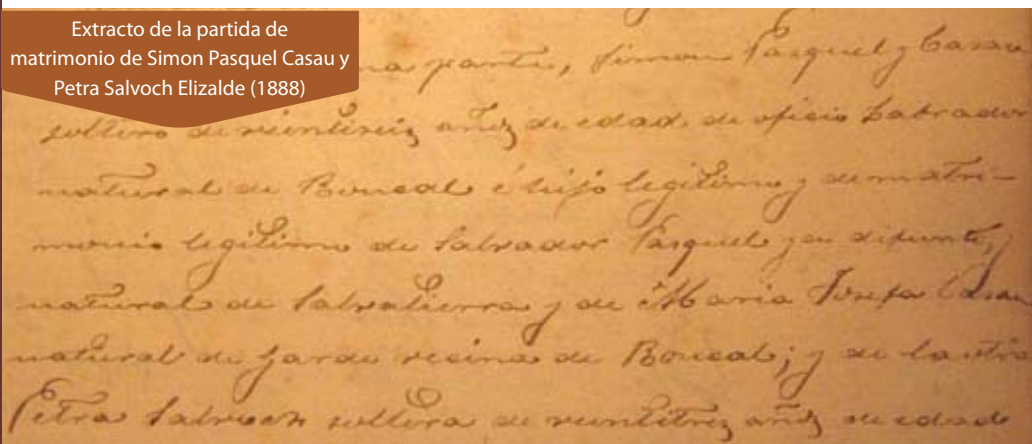 Extracto de la partida de
matrimonio de Simon Pasquel Casau y
Petra Salvoch Elizalde (1888)
parte, Simon Pasquel y Casau
soltero de veintiseis años de edad de oficio Labrador
natural de Roncal é hijo legitimo y de matri-
monio legitimo de Salvador Pasquel ya difunto,
natural de Salvatierra y de Maria Josefa Casau
natural de Garde vecina de Roncal; y de la otra
Petra Salvoch soltera de veintitres años de edad